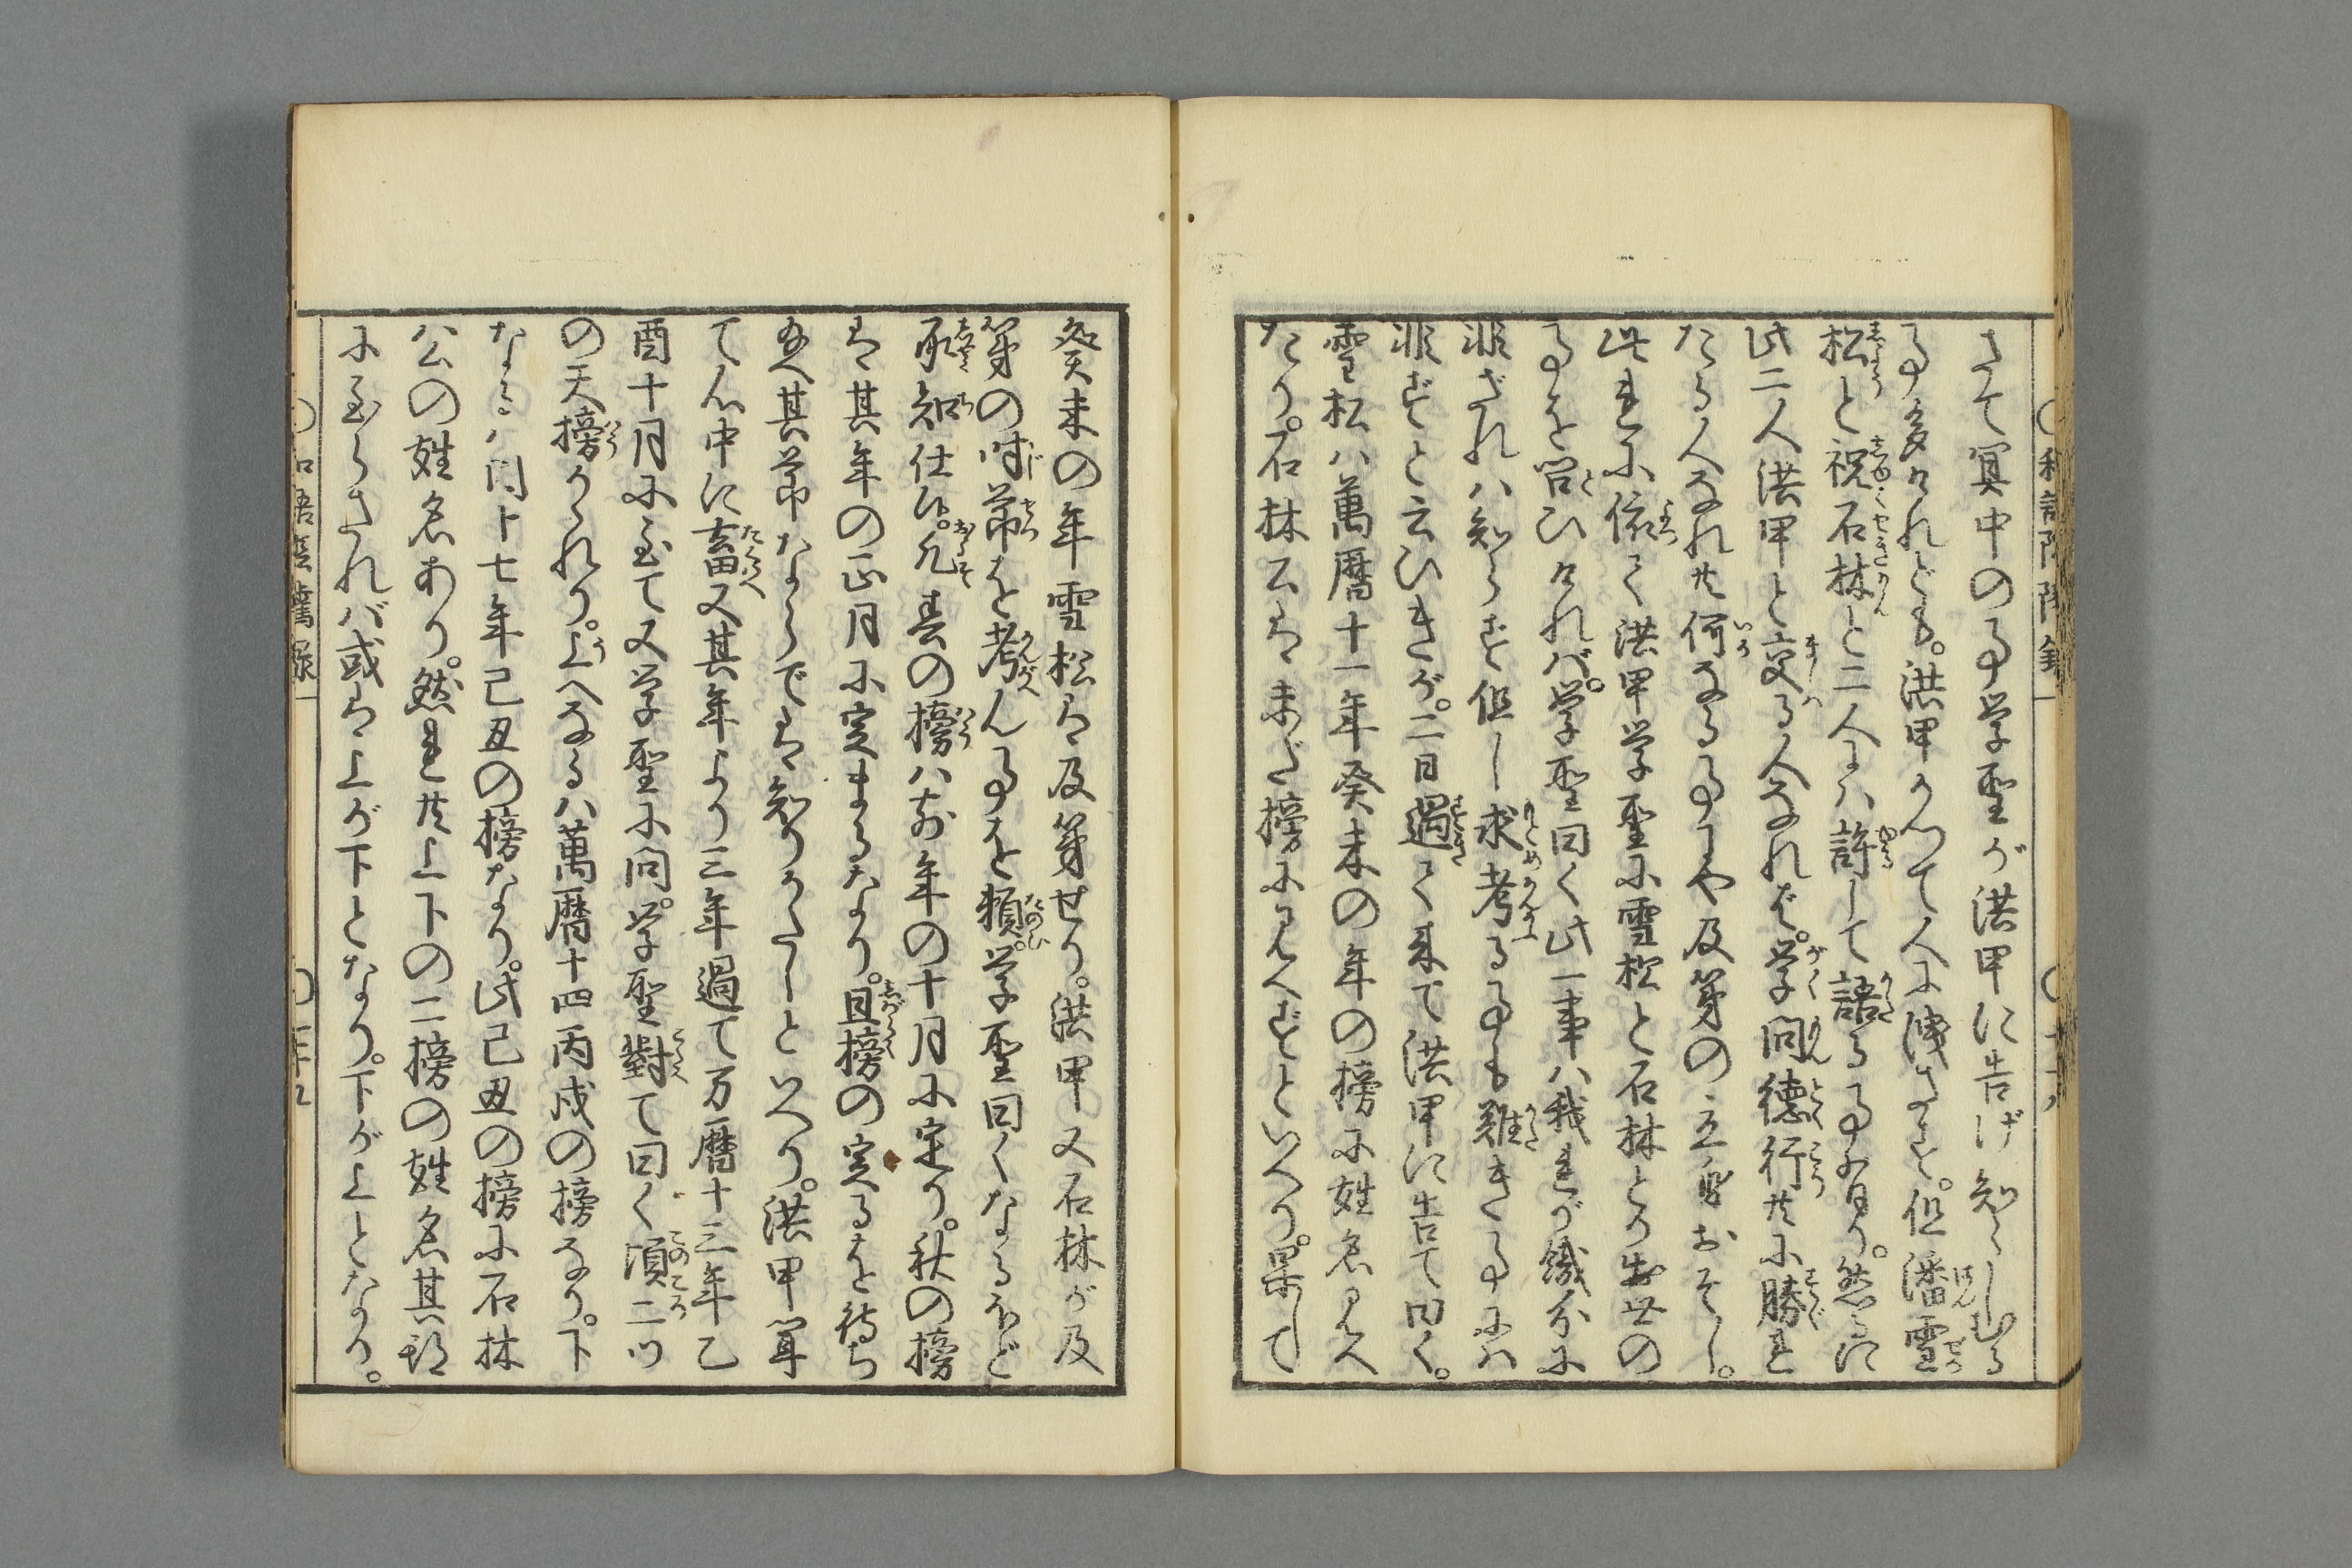 さて冥中の事学聖が洪甲に告げ知らしむる
事多けれども。洪甲かつて人に洩さず。但潘雪
松と祝石林と二人には許して語る事有り。然るに
此二人洪甲と交る人なれば。学問徳行共に勝れ
たる人なれ共何なる事にや及第の立身おそし。
此れに依て洪甲学聖に雪松と石林との出世の
事を問ひければ。学聖曰く此一事ハ我れが職分に
非ざれハ知らず但し求考る事も難き事にハ
非ずと云ひきが。二日過て来て洪甲に告て曰く。
雪松ハ萬暦十一年癸未の年の榜に姓名見へ
たり。石林公は未だ榜に見へずといへり。果して
癸未の年雪松は及第せり。洪甲又石林が及
第の時節を考ん事を頼。学聖曰くなるほど
承知仕候。凡春の榜ハ前年の十月に定り。秋の榜
は其年の正月に定まるなり。且榜の定るを待ち
給へ其節ならでは知りがたしといへり。洪甲聞
て心中に畜又其年より三年過て万暦十三年乙
酉十月に至て又学聖に問。学聖對て曰く頃二ツ
の天榜かゝれり。上へなるハ萬暦十四丙戌の榜なり。下
なるハ同十七年己丑の榜なり。此己丑の榜に石林
公の姓名あり。然れ共上下の二榜の姓名其期
に至らざれバ或は上が下となり。下が上となる。